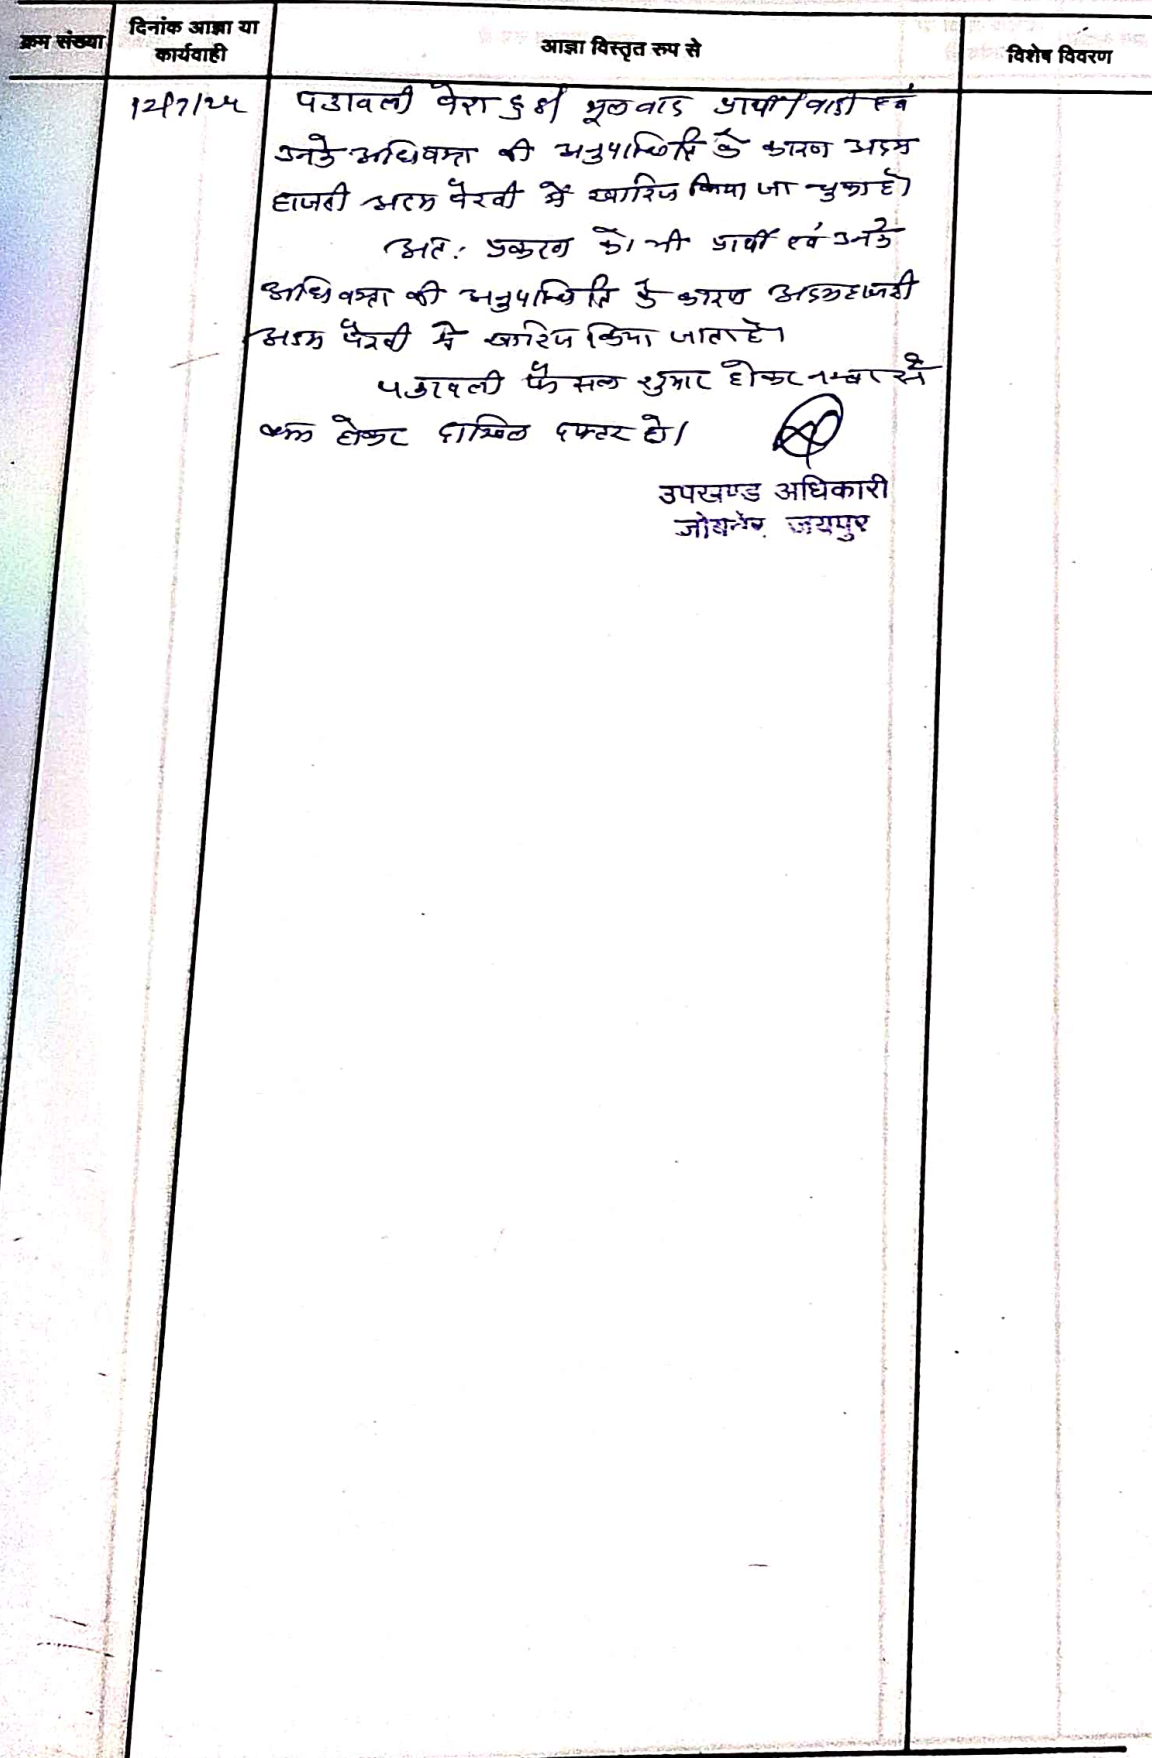 क्रम संख्या
दिनांक आज्ञा या
कार्यवाही
आज्ञा विस्तृत रुप से
विशेष विवरण
12/7/24
पत्रावली पेश हुई। मूलवाद प्रार्थी/वादी एवं
उनके अधिवक्ता की अनुपस्थिति के कारण अदम
हाजरी अदम पैरवी में खारिज किया जा चुका है।
अतः प्रकरण को भी प्रार्थी एवं उनके
अधिवक्ता की अनुपस्थिति के कारण अदम हाजरी
अदम पैरवी में खारिज किया जाता है।
पत्रावली फैसल शुमार होकर नम्बर से
कम होकर दाखिल दफ्तर हो।
उपखण्ड अधिकारी
जोबनेर, जयपुर